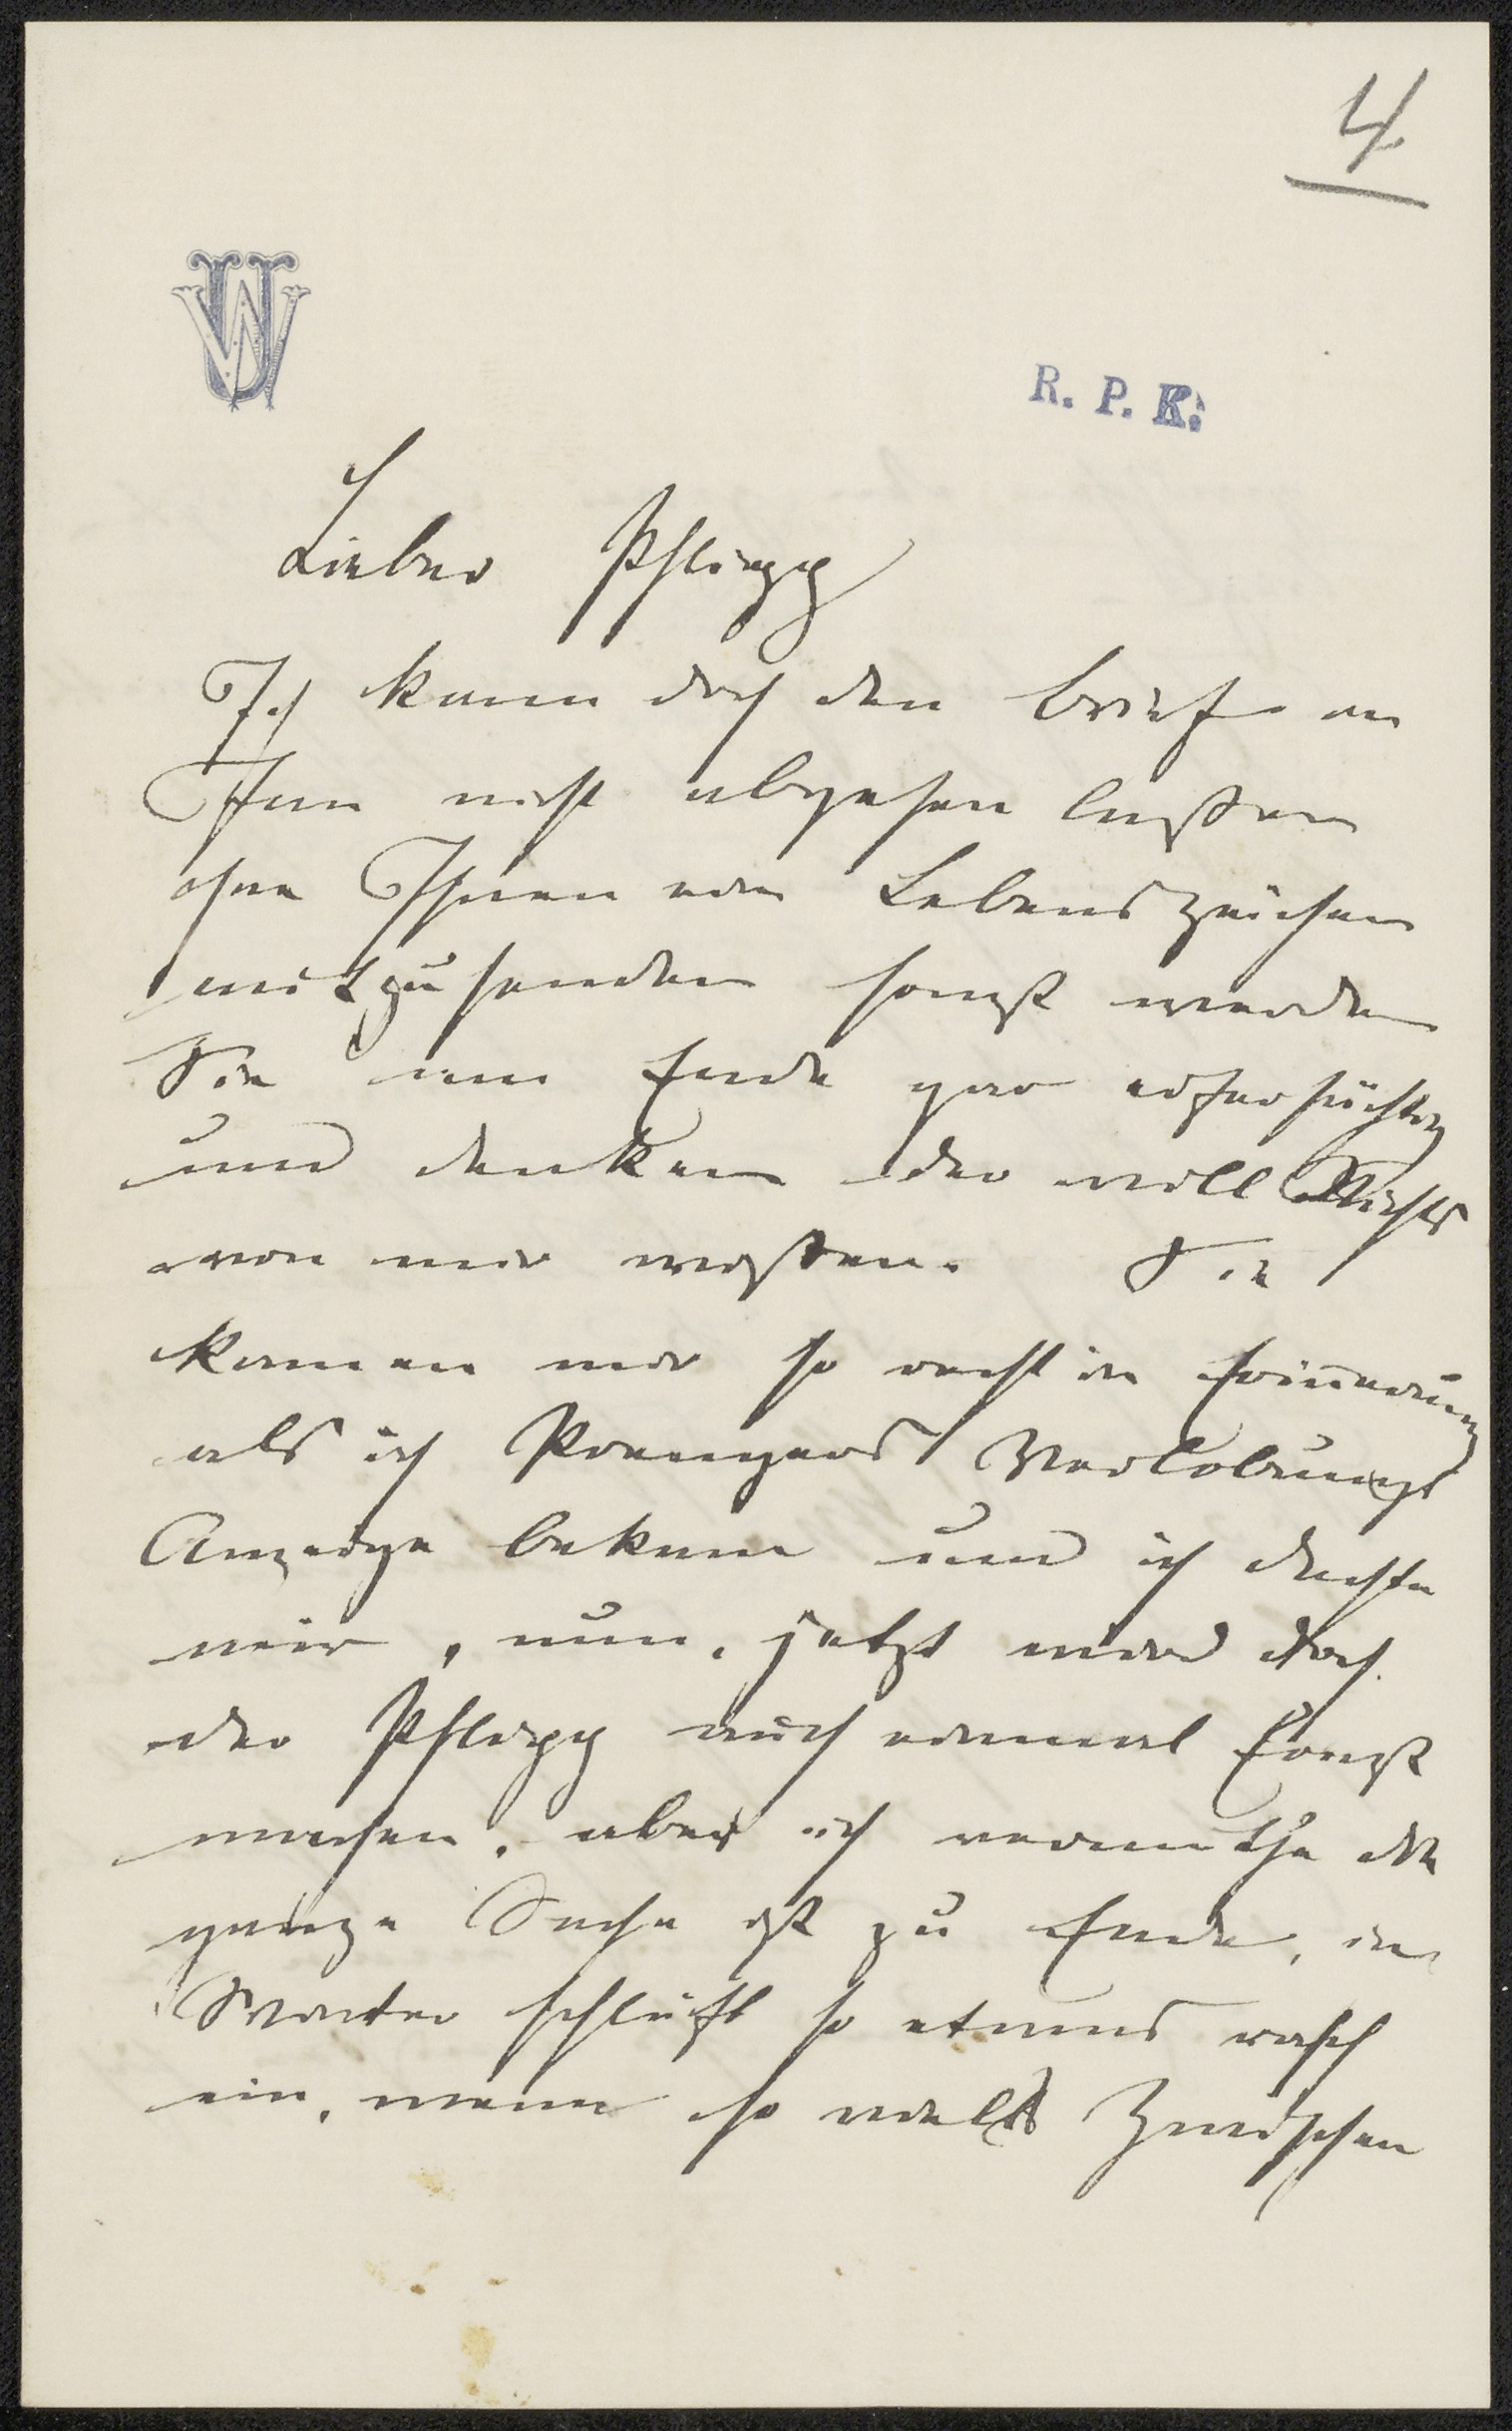 4.
UW
R. P. K.
Lieber Pflügg
Ich kann doch den Brief an
Ihnen nicht abgehen laßen
ohne Ihnen ein Lebenszeichen
mitzusenden sonst werden
Sie am Ende gar eifersüchtig
und denken der will Nichts
von mir wissen. Sie
kamen mir so recht in Erinnerung
als ich Verlobungs
Anzeige bekam und ich dachte
mir, nun, jetzt wird doch
der Pflügg auch einmal Ernst
machen, aber ich vermuthe die
ganze Sache ist zu Ende, im
Winter schläft so etwas rasch
ein, wenn so viel Zwischen